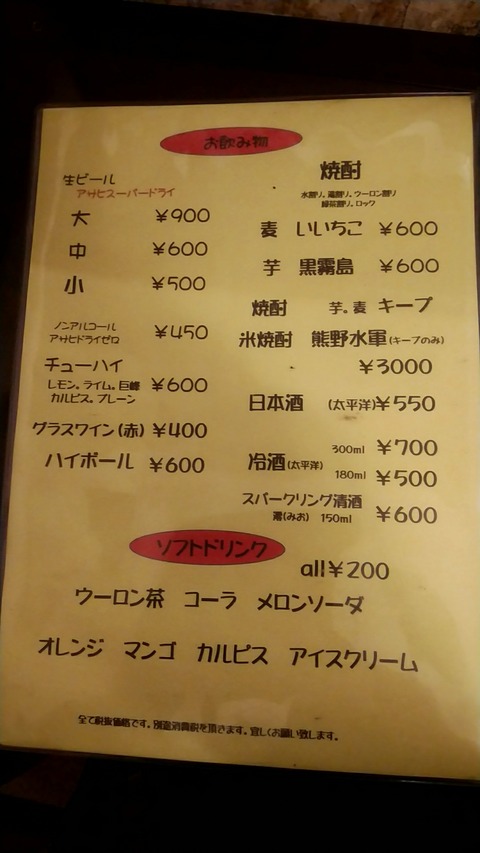 お飲み物
生ビール
アサヒスーパードライ
大 ¥900
中 ¥600
小 ¥500
ノンアルコール
アサヒドライゼロ ¥450
チューハイ
レモン。ライム。巨峰 ¥600
カルピス。プレーン
グラスワイン(赤) ¥400
ハイボール ¥600
焼酎
水割り。湯割り。ウーロン割り
緑茶割り。ロック
麦 いいちこ ¥600
芋 黒霧島 ¥600
焼酎 芋。麦 キープ
米焼酎 熊野水軍(キープのみ)
¥3000
日本酒 (太平洋)¥550
冷酒(太平洋) 300ml ¥700
180ml ¥500
スパークリング清酒
澪(みお) 150ml ¥600
ソフトドリンク
all¥200
ウーロン茶 コーラ メロンソーダ
オレンジ マンゴ カルピス アイスクリーム
全て税抜価格です。別途消費税を頂きます。宜しくお願い致します。